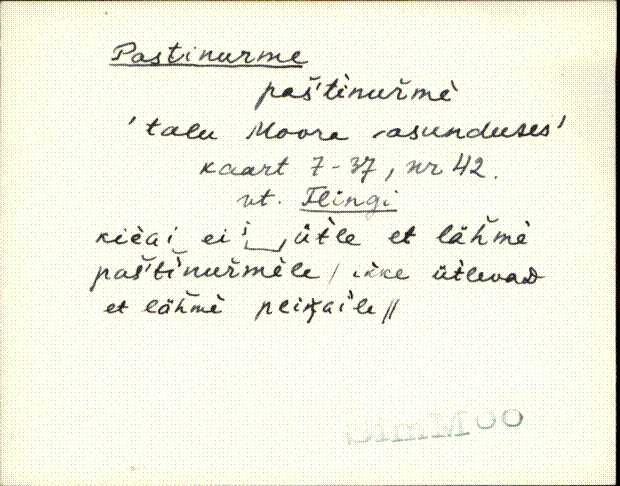 Pastinurme
paš'tinuřmè
'talu Moora -asunduses'
kaart 7-37, nr 42.
vt. Ilingi
kièɢi ei ütle et lähmè
paš'tinuřmèle / ikke ütlevaᴅ
et lähmè pliŋɢile //